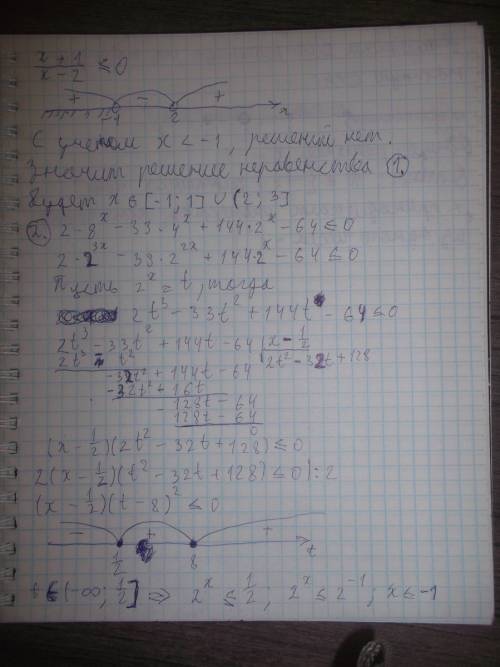 (x+1)/(x-2) ≤ 0
+ - + -1 2 x
С учетом x < -1, решений нет.
Значит решение неравенства 1.
будет x ∈ [-1; 1] ∪ (2; 3]
2. 2·8^x - 33·4^x + 144·2^x - 64 ≤ 0
2·2^(3x) - 33·2^(2x) + 144·2^x - 64 ≤ 0
Пусть 2^x = t, тогда
2t³ - 33t² + 144t - 64 ≤ 0
2t³ - 33t² + 144t - 64 | x - 1/2
2t³ - t² | 2t² - 32t + 128
-32t² + 144t - 64
-32t² + 16t
128t - 64
128t - 64
0
(x - 1/2)(2t² - 32t + 128) ≤ 0
2(x - 1/2)(t² - 32t + 128) ≤ 0 | : 2
(x - 1/2)(t - 8)² ≤ 0
- + + 1/2 8 t
t ∈ (-∞; 1/2] ⇒ 2^x ≤ 1/2; 2^x ≤ 2^(-1); x ≤ -1